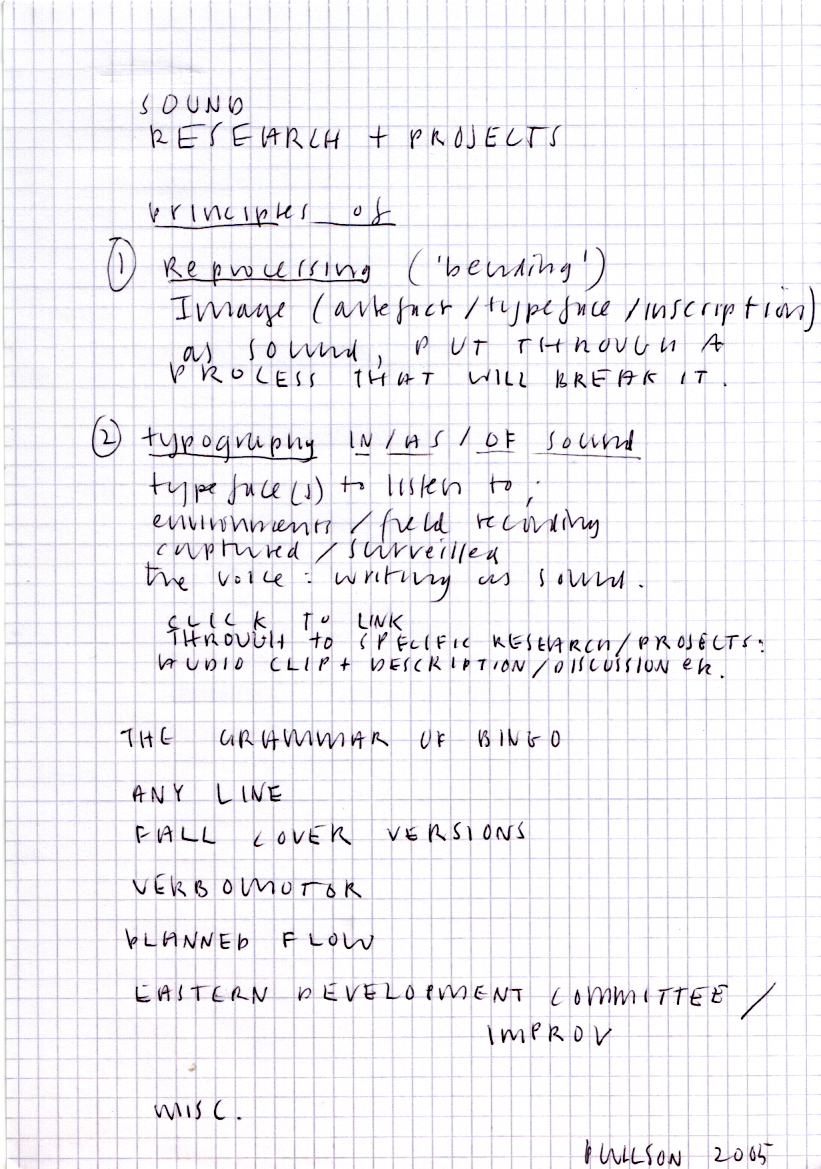 SOUND
RESEARCH + PROJECTS
principles of
① Reprocessing ('bending')
Image (artefact / typeface / inscription)
as sound, PUT THROUGH A
PROCESS THAT WILL BREAK IT.
② typography IN / AS / OF sound
typeface(s) to listen to;
environments / field recording
captured / surveilled
the voice: writing as sound.
CLICK TO LINK
THROUGH TO SPECIFIC RESEARCH / PROJECTS:
AUDIO CLIP + DESCRIPTION / DISCUSSION etc.
THE GRAMMAR OF BINGO
ANY LINE
FALL COVER VERSIONS
VERBOMOTOR
PLANNED FLOW
EASTERN DEVELOPMENT COMMITTEE /
IMPROV
MISC.
P WILSON 2005